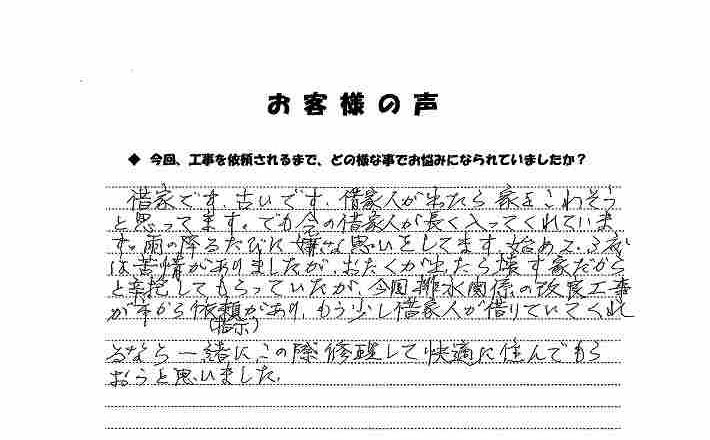 お客様の声
◆ 今回、工事を依頼されるまで、どの様な事でお悩みになられていましたか?
借家です。古いです。借家人が出たら家をこわそう
と思ってます。でも今の借家人が長く入ってくれていま
す。雨の降るたびに嫌な思いをしてます。始め2.3度
は苦情がありましたが、おたくが出たら壊す家だから
と辛抱してもらっていたが、今回排水関係の改良工事
が市から依頼があり、もう少し借家人が借りていてくれ
(指示)
るなら一緒にこの際修理して快適に住んでもら
おうと思いました。